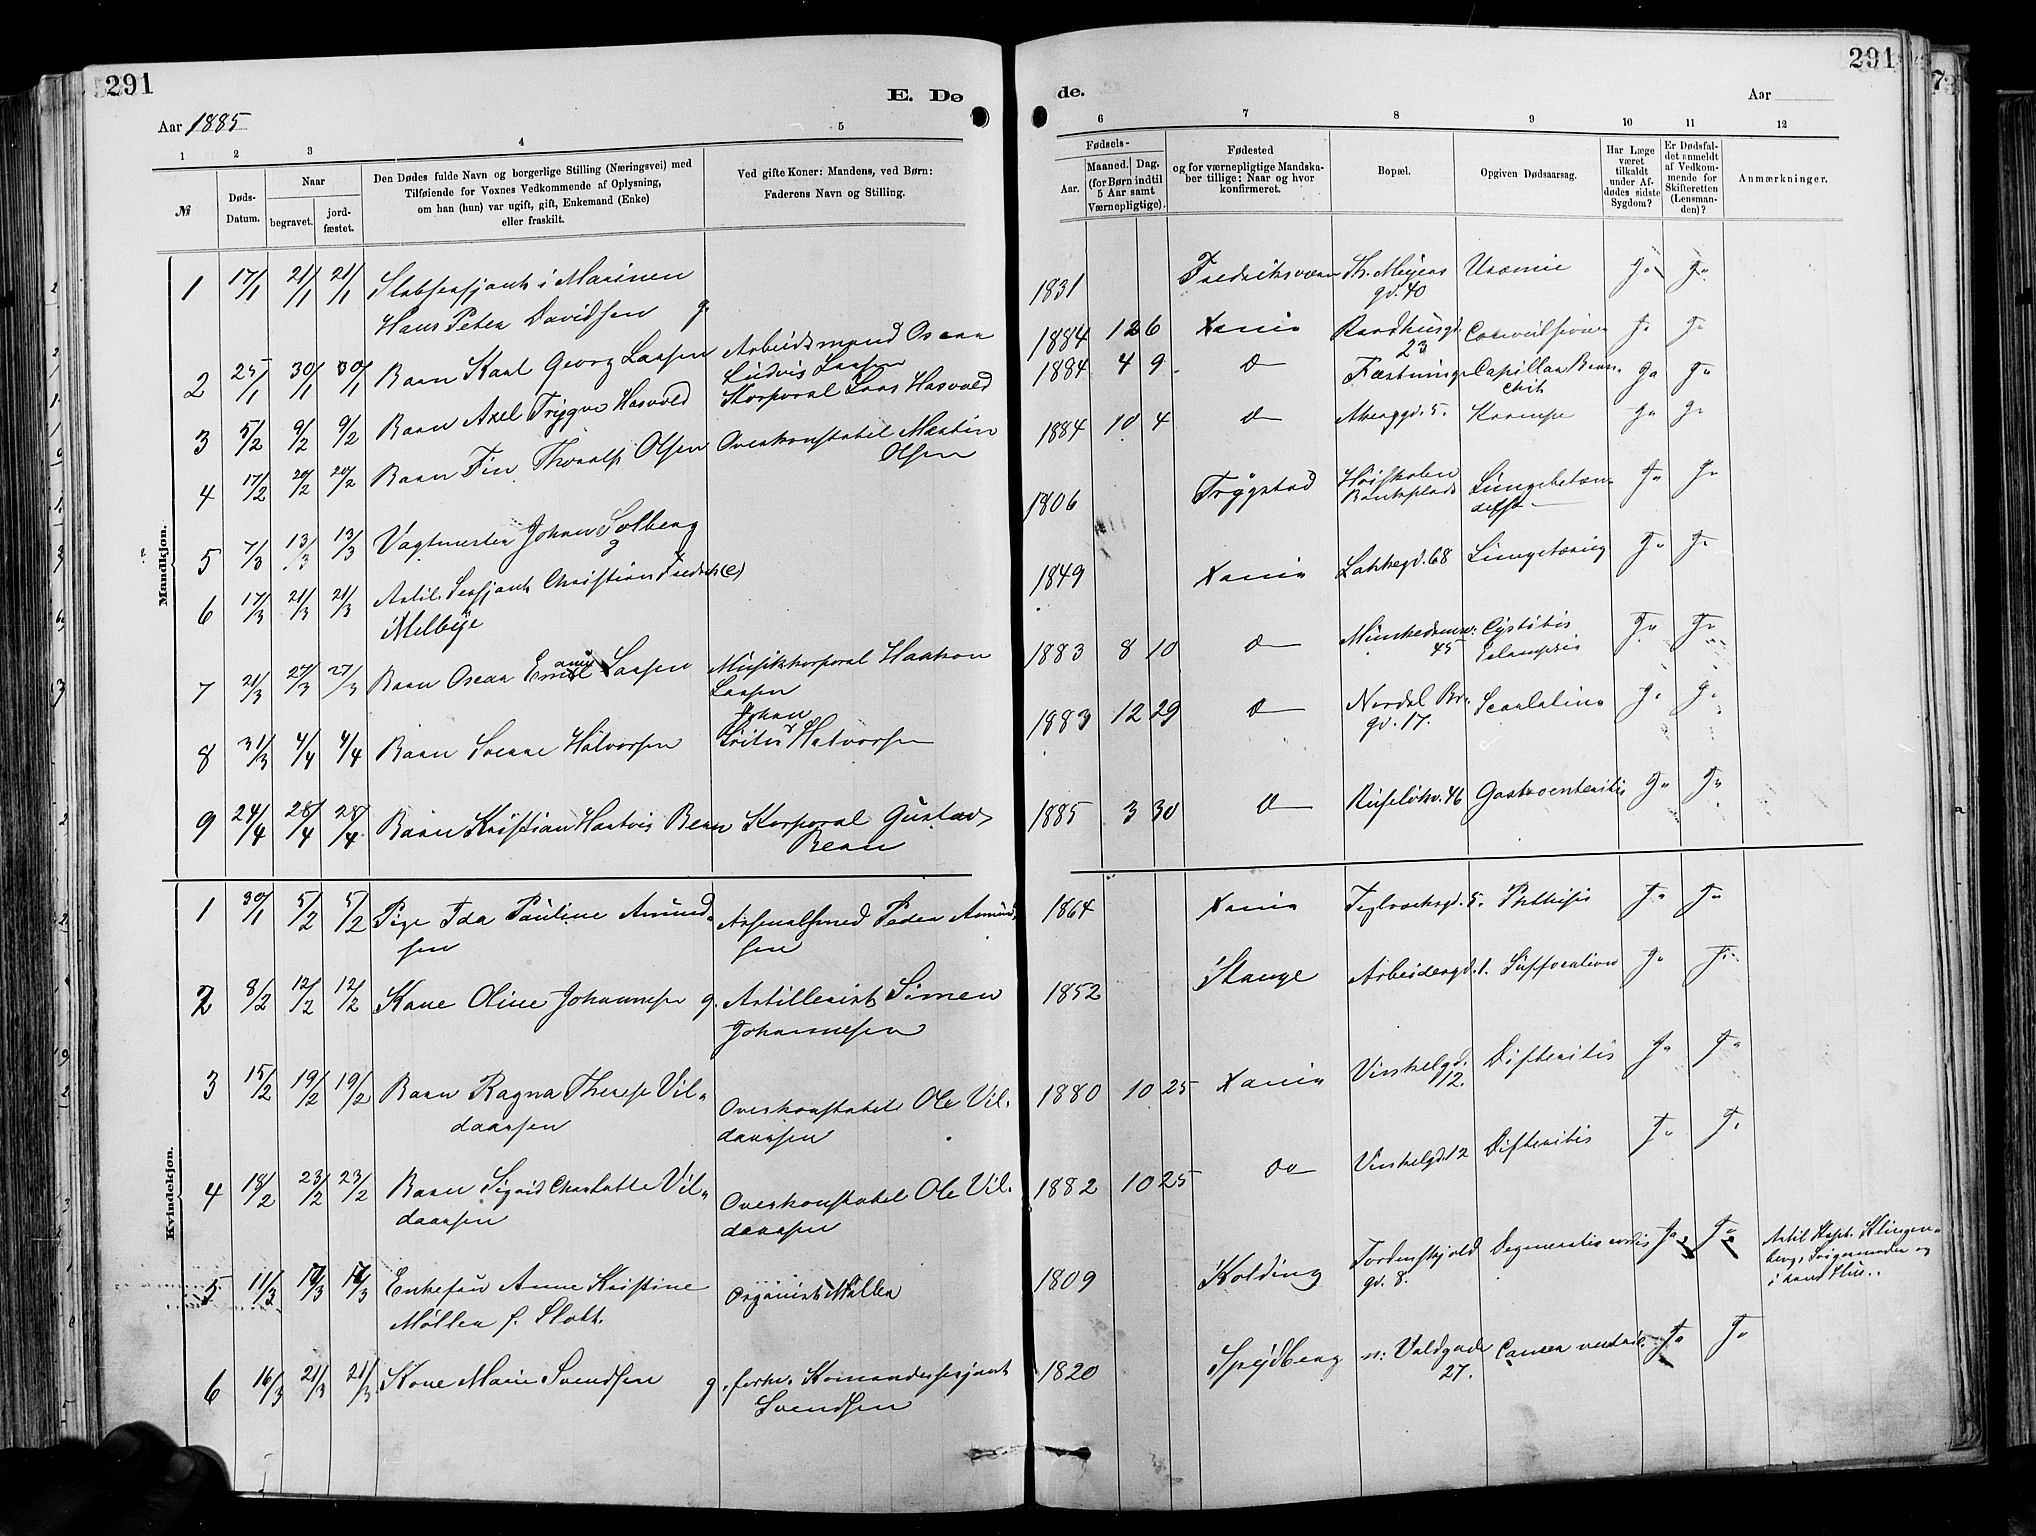 291
E. Dø
Aar 1885
1 2 3 4 5
№
Døds-
Datum.
Naar
begravet.
jord-
fæstet.
Den Dødes fulde Navn og borgerlige Stilling (Næringsvei) med
Tilføiende for Voxnes Vedkommende af Oplysning,
om han (hun) var ugift, gift, Enkemand (Enke)
eller fraskilt.
Ved gifte Koner: Mandens, ved Børn:
Faderens Navn og Stilling.
Mandkjøn.
1 17/1 21/1 21/1 Stabsersjant i Marinen
Hans Peter Davidsen g.
2 25/1 30/1 30/1 Barn Karl Georg Larsen Arbeidsmand Oscar
Ludvig Larsen
3 5/2 9/2 9/2 Barn Axel Trygve Hasvold Korporal Lars Hasvold
4 17/2 20/2 20/2 Barn Fin Thoralf Olsen Overkonstabel Martin
Olsen
5 7/3 13/3 13/3 Vagtmester Johan Solberg
g
6 17/3 21/3 21/3 Artil. Sersjant Christian Fredrik (e)
Melbye
7 21/3 27/3 27/3 Barn Oscar Emil Larsen Musikkorporal Haakon
Larsen
8 31/3 4/4 4/4 Barn Sverre Halvorsen Johan
Halvorsen
9 24/4 28/4 28/4 Barn Kristian Hartvig Bern Korporal Gustav
Bern
Kvindekjøn.
1 30/1 5/2 5/2 Pige Ida Pauline Amund-
sen Arsenalsmed Peder Amund
sen
2 8/2 12/2 12/2 Kone Oline Johannesen g. Artillerist Simen
Johannesen
3 15/2 19/2 19/2 Barn Ragna Therese Vil-
daassen Overkonstabel Ole Vil-
daassen
4 18/2 23/2 23/2 Barn Sigrid Charlotte Vil-
daassen Overkonstabel Ole Vil-
daassen
5 11/3 17/3 17/3 Enkefru Anne Kristine
Møller f. Slott. Organist Møller
6 16/3 21/3 21/3 Kone Marie Svendsen g. forhv. Komandersersjant
Svendsen
de.
291
Aar
6 7 8 9 10 11 12
Fødsels-
Aar.
Maaned. Dag.
(for Børn indtil
5 Aar samt
Værnepligtige).
Fødested
og for værnepligtige Mandska-
ber tillige: Naar og hvor
konfirmeret.
Bopæl.
Opgiven Dødsaarsag.
Har Læge
været
tilkaldt
under Af-
dødes sidste
Sygdom?
Er Dødsfal-
det anmeldt
af Vedkom-
mende for
Skifteretten
(Lensman-
den)?
Anmærkninger.
1831 Fredriksværn Th. Meyers
gd. 40 Uræmie Ja Ja
1884 12 6 Xania Raadhusgd.
23 Convulsioner Ja Ja
1884 4 9 do Fæstningen Capillær Bron-
chit Ja Ja
1884 10 4 do Akersgd. 5. Krampe Ja Ja
1806 Trygstad Høiskolen
Bankplads Lungebetæn-
delse Ja Ja
1849 Xania Lakkegd. 68 Lungetæring Ja Ja
1883 8 10 do Munkedamsv.
45 Cystitis
Eclampsia Ja Ja
1883 12 29 do Nordal Br.
gd. 17. Scarlatina Ja Ja
1885 3 30 do Ruseløkv. 46 Gastroenteritis Ja Ja
1864 Xania Teglverksgd. 5. Phthisis Ja Ja
1852 Stange Arbeidergd. 1. Suffocation Ja Ja
1880 10 25 Xania Vinkelgd.
12. Difteritis Ja Ja
1882 10 25 do Vinkelgd. 12 Difteritis Ja Ja
1809 Kolding Tordenskjold
gd. 8. Degeneratio cordis Ja Ja Artil. Kapt. Klingen-
berg, Svigermoder og
i hans Hus.
1820 Spydberg n: Voldgade
27. Cancer ventric. Ja Ja